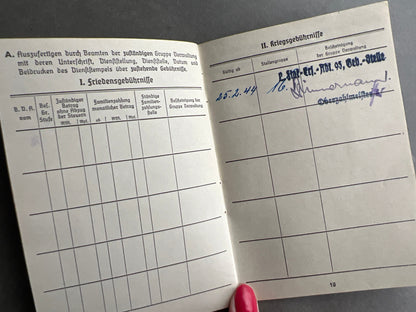 A. Auszufertigen durch Beamten der zuständigen Gruppe Verwaltung
mit deren Unterschrift, Dienststellung, Dienststelle, Datum und
Beidrucken des Dienststempels über zustehende Gebührnisse.
I. Friedensgebührnisse
B. D. A.
vom
Bes.
Gr.
Stufe
Zuständiger
Betrag
ohne Abzug
der Steuern
RM. Rpf.
Familienzahlung
monatlicher Betrag
ab RM. Rpf.
Ständige
Familien-
zahlungs-
stelle
Bescheinigung
der Gruppe Verwaltung
II. Kriegsgebührnisse
Gültig ab
Soldgruppe
Bescheinigung
der Gruppe Verwaltung
25.2.44
16.
Flak-Ers.-Abt. 93, Geb.-Stelle
Oberzahlmeister
16